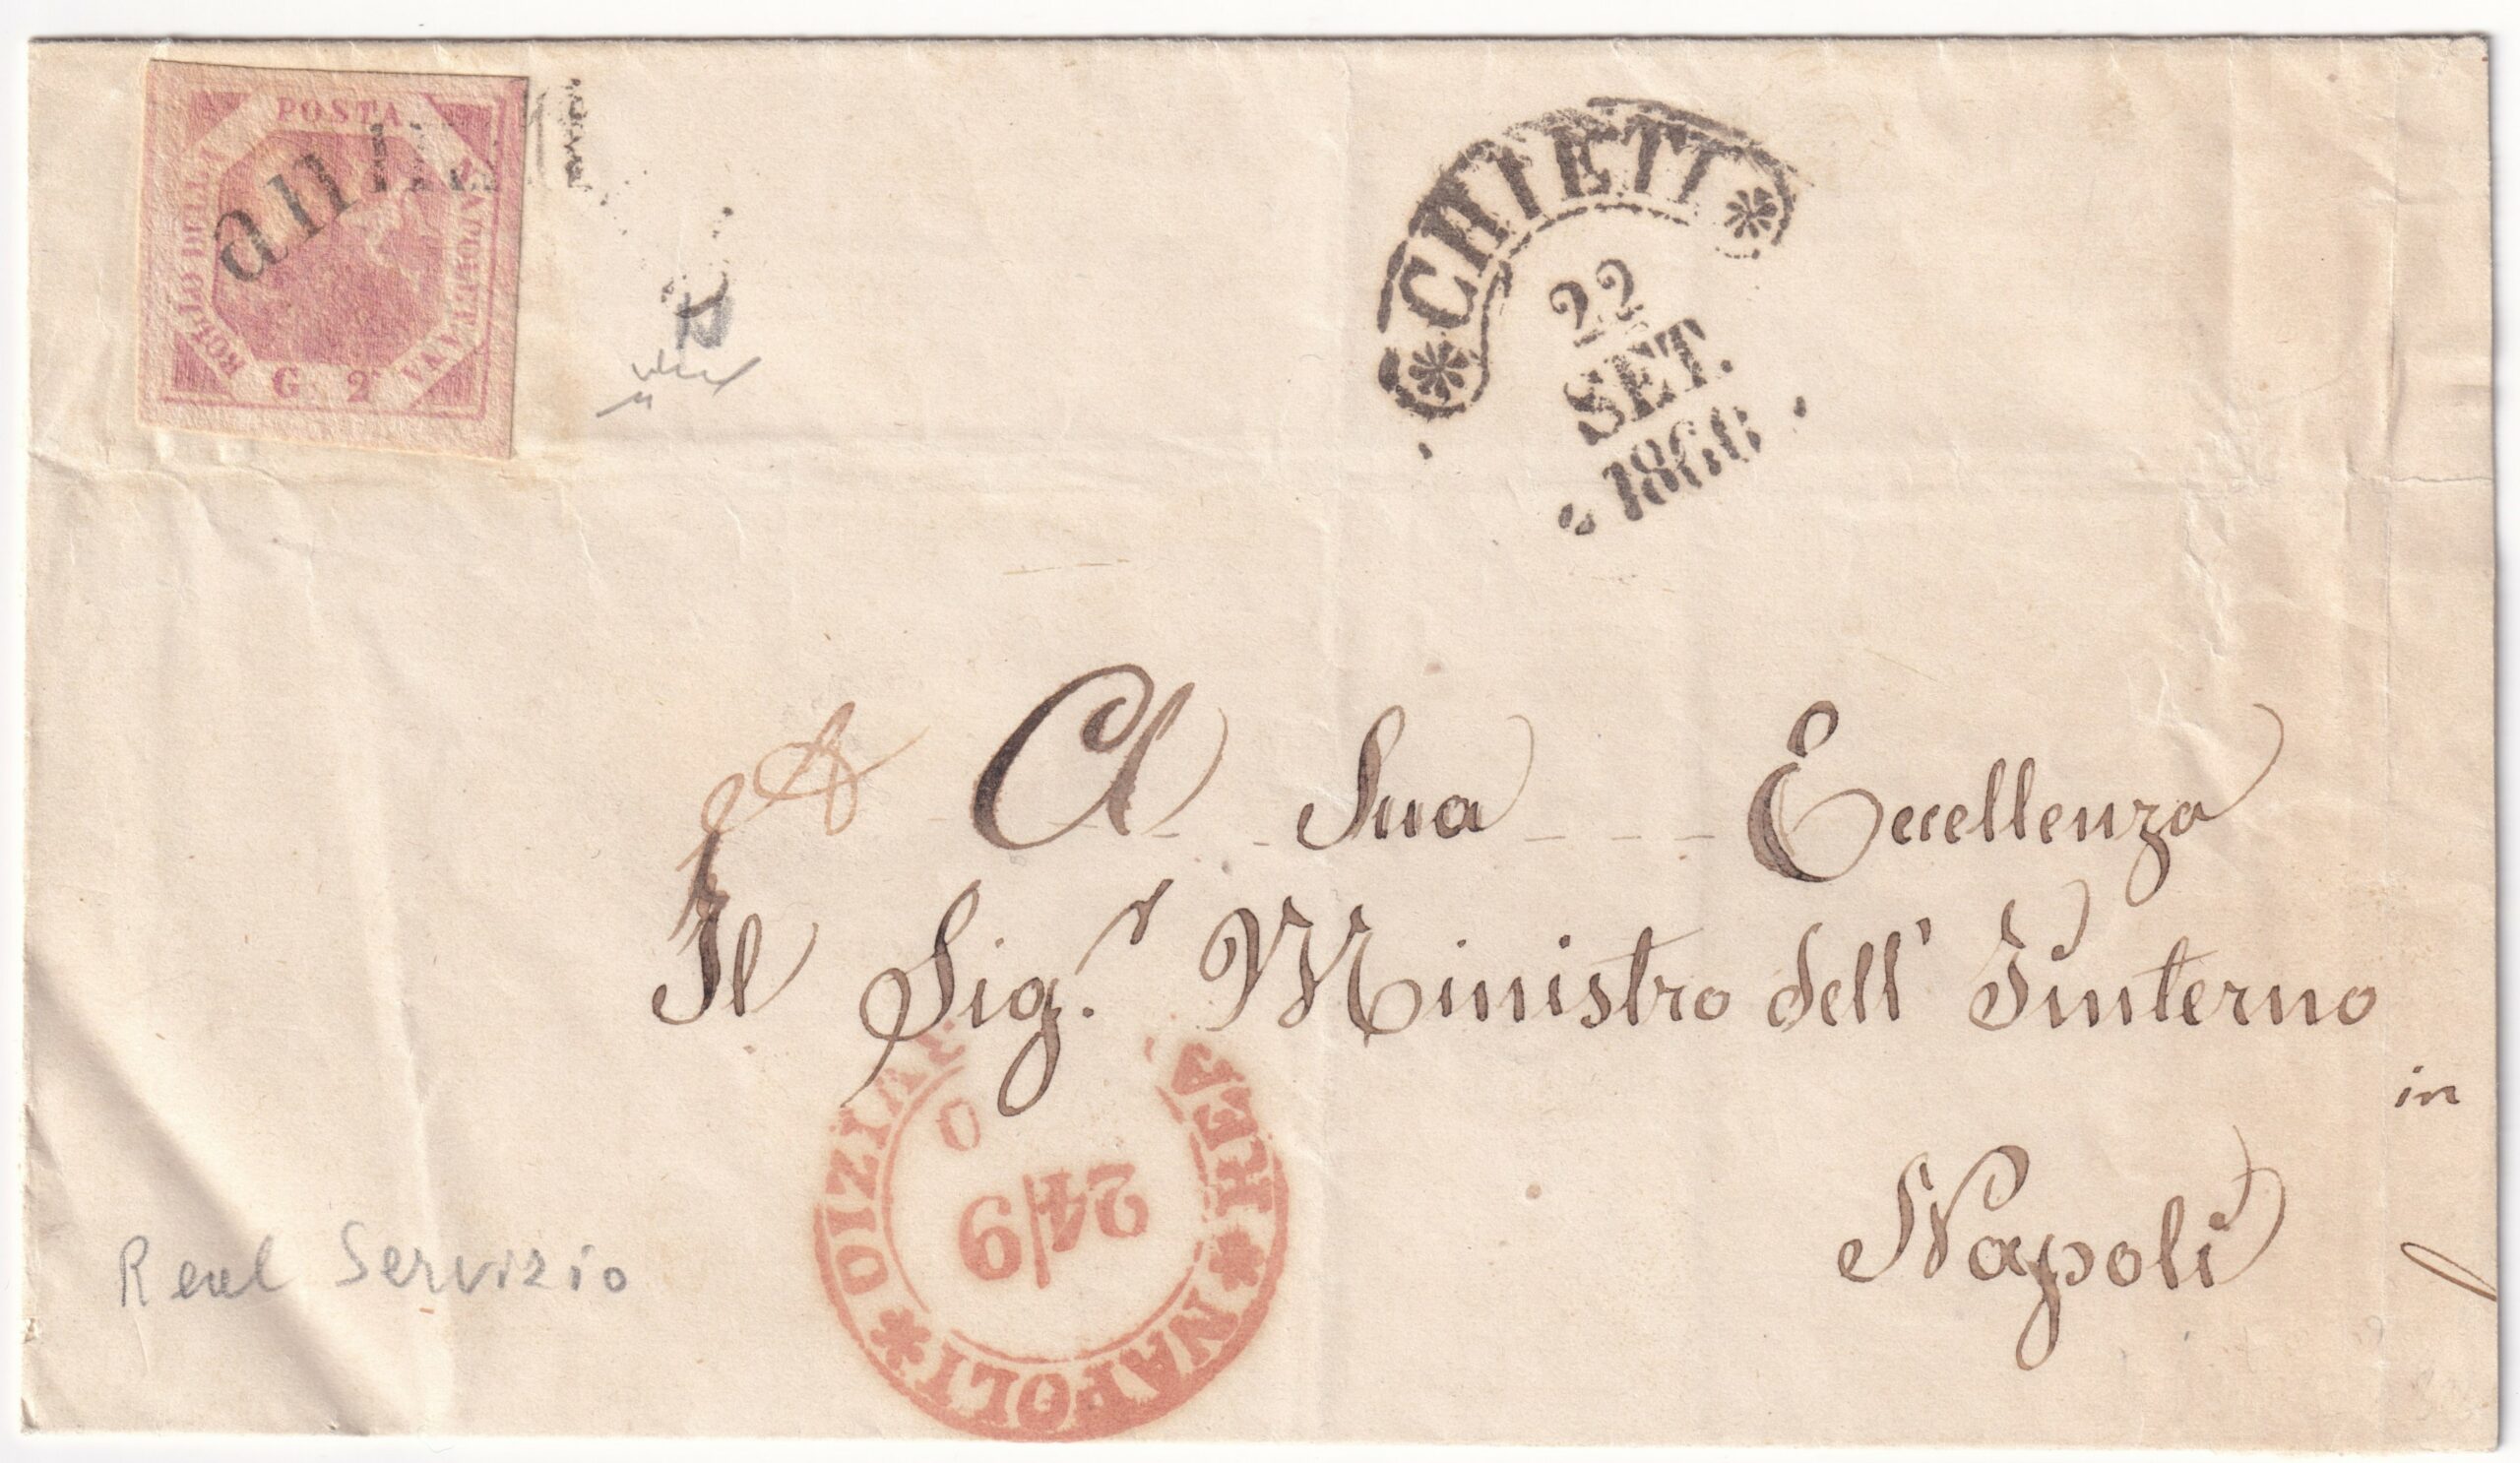 POSTA
BOLLO DELLA
NAPOLETANA
G. 2
ann
CHIETI
22
SET.
1860
A Sua Eccellenza
Il Sig.r Ministro dell' Interno
in
Napoli
Real Servizio
NAPOLI
24/9